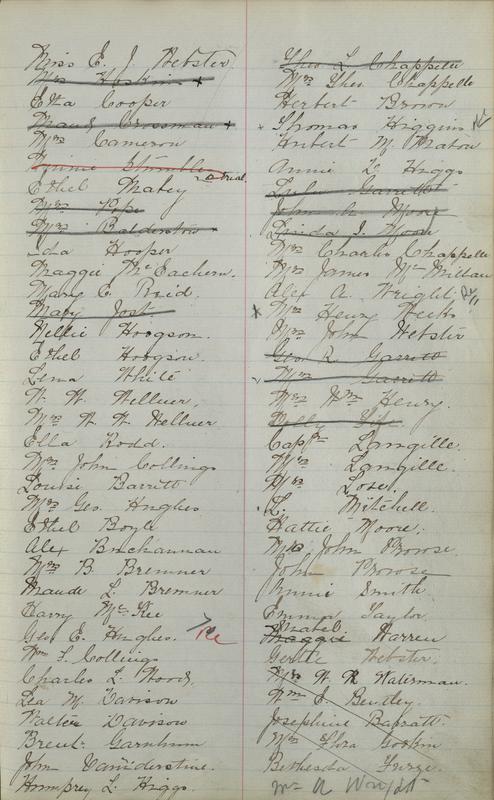 Miss E. J. Webster
Mrs Hoskins x
Etta Cooper
Maud Crossman x
Mrs Cameron
Minnie
a trial
Ethel Mabey
Mrs Pye
Mrs Balderston
Ida Hooper
Maggie McEachern.
Mary E. Reid
Mary Jost
Nellie Hodgson.
Ethel Hodgson.
Lena White
W. W. Wellner.
Mrs W. W. Wellner
Ella Rodd.
Mrs John Collings
Louisi Barritt
Mrs Geo. Hughes
Ethel Boyle
Alex Buchannan
Mrs B. Bremner
Maude L. Bremner
Harry McKee
Geo. E. Hughes. Re
Wm S. Collings
Charles L. Wood,
Lea M. Davison
Walter Davison
Brent. Garnhum
John Vaniderstine.
Humphrey L. Higgs.
Theo L Chappelle
Mrs Theo Chappelle
Herbert Brown
x Thomas Higgins
Hubert M. Maton
Annie L. Higgs
Garrett
John A Moore
Linda J. Moore
Mrs Charles Chappelle
Mrs James McMillan
Alex A. Wright
x Mrs Henry Weeks
Mrs John Webster
Geo R Garrett
Mrs Garrett
Mrs Wm Henry.
Capt Langille.
Mrs Langille.
Mrs Love
L. Mitchell.
Hattie Moore.
Mrs John Prowse.
John Prowse
Annie Smith
Emma Taylor.
Isabel
Maggie Warren
Gertie Webster.
Mrs W. R Waterman.
Wm E. Bentley.
Josephine Bapratt
Mrs Flora Goskin
Bethesda Furze.
Mr A Wright